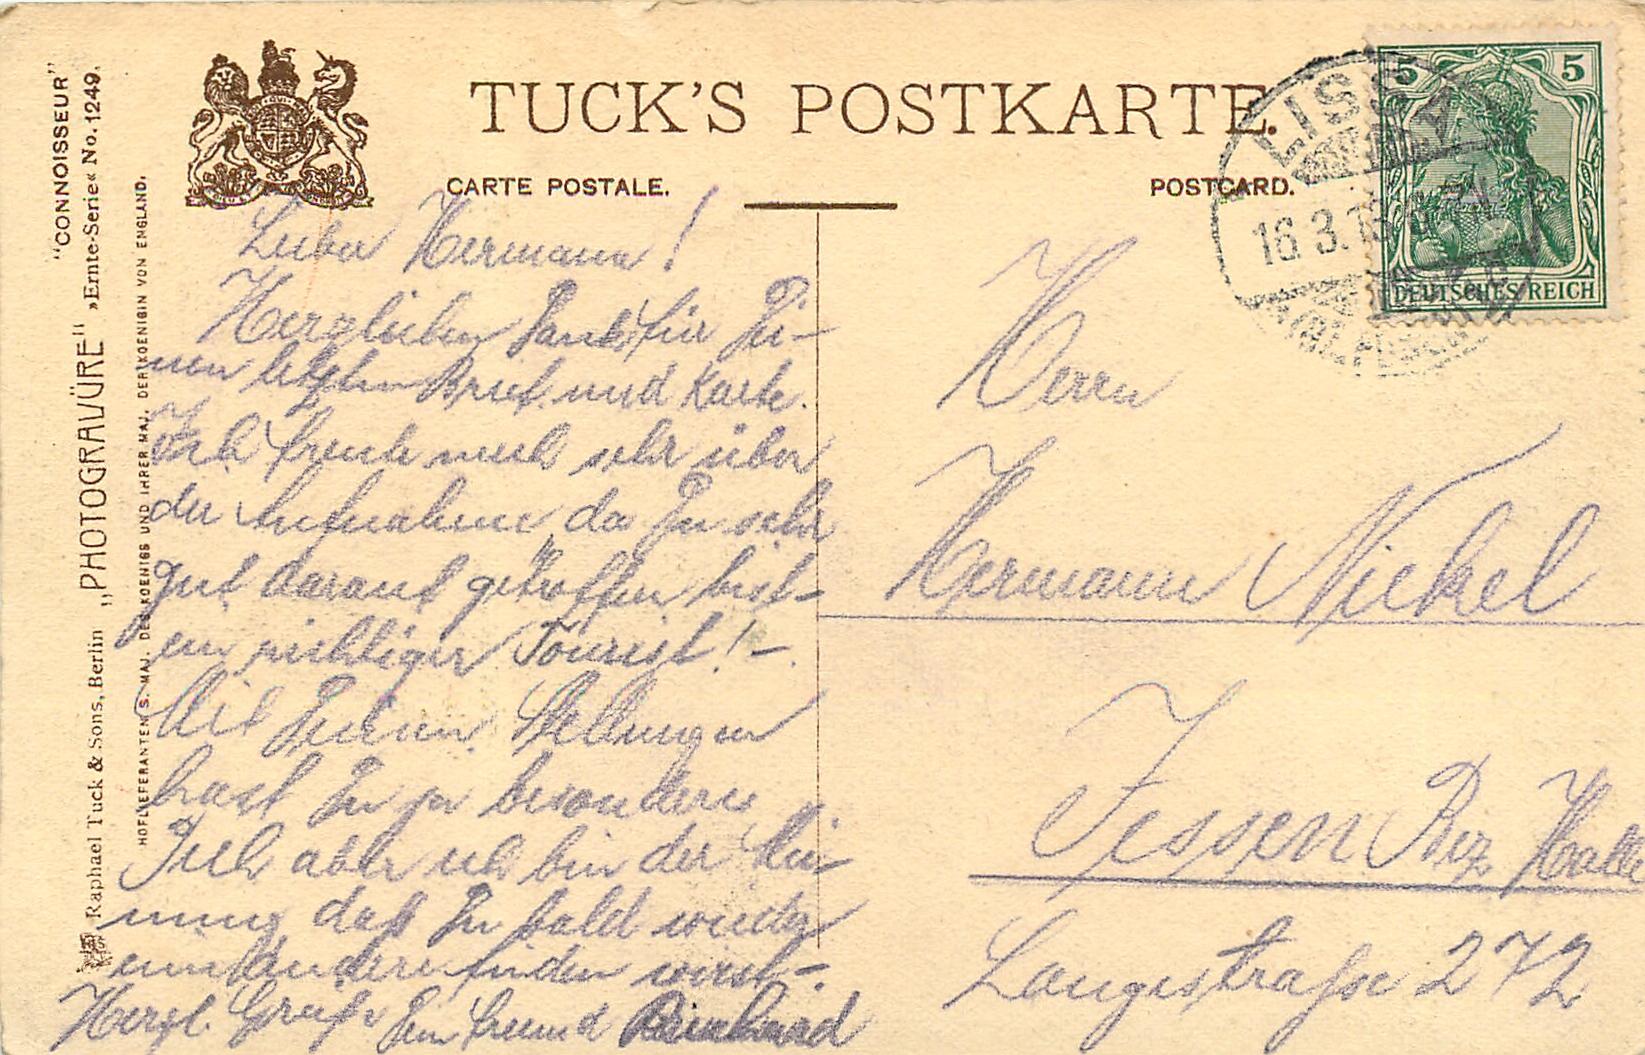 TUCK'S POSTKARTE.
CARTE POSTALE.
POSTCARD.
"CONNOISSEUR"
»Ernte-Serie« No. 1249.
„PHOTOGRAVÜRE"
Raphael Tuck & Sons, Berlin
HOFLIEFERANTEN S. MAJ. DES KOENIGS UND IHRER MAJ. DER KOENIGIN VON ENGLAND.
5 5
DEUTSCHES REICH
LISSA
16.3.13
Lieber Hermann!
Herzlichen Dank für Dei-
nen letzten Brief und Karte.
Ich freute mich sehr über
der Aufnahme da Du sehr
gut darauf getroffen bist-
ein richtiger Tourist! -
Mit Deinen Stellungen
hast Du ja besonderes
Pech aber ich bin der Mei-
nung daß Du bald wieder
eine andere finden wirst -
Herzl. Grüße Dein Freund Reinhard
Herrn
Hermann Nickel
Jessen Bez Halle
Langestraße 272